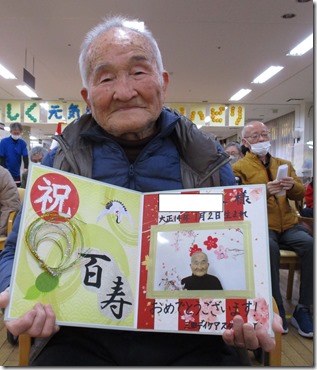 しく元気
ハビリ
祝
百寿
様
大正14年1月2日生まれ
おめでとうございます!
デイケアスタッフ